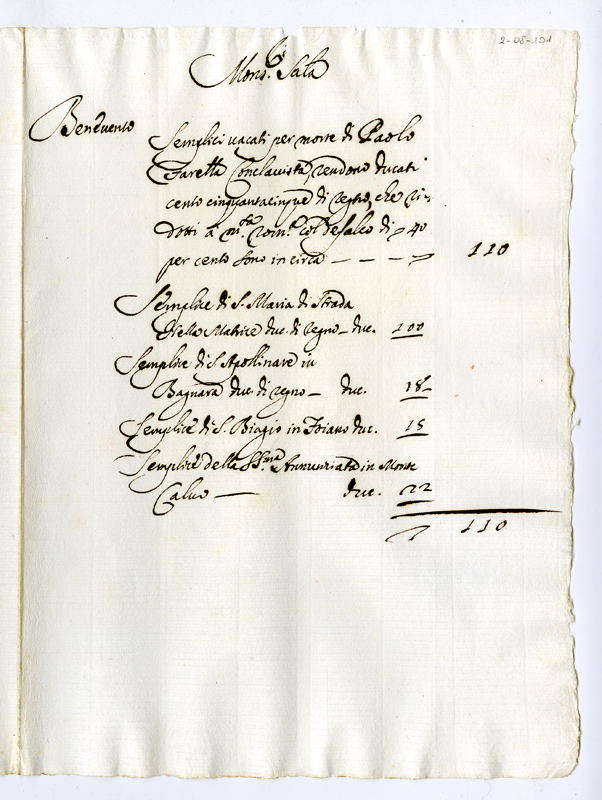 2-08-101
Mons.r Sala
Beneuento
Semplici uacati per morte di Paolo
Faretta Conclauista, rendono ducati
cento cinquantacinque di regno, che ri-
dotti à m.ta rom.a col di 40
per cento sono in circa — — — 110
Semplice di S. Maria di Strada
della Matrice duc. di regno — duc. 100
Semplice di S. Apollinare in
Bagnara duc. di regno — duc. 18
Semplice di S. Biagio in Foiano duc. 15
Semplice della SS.ma Annunziata in Monte
Caluo — duc. 22
110